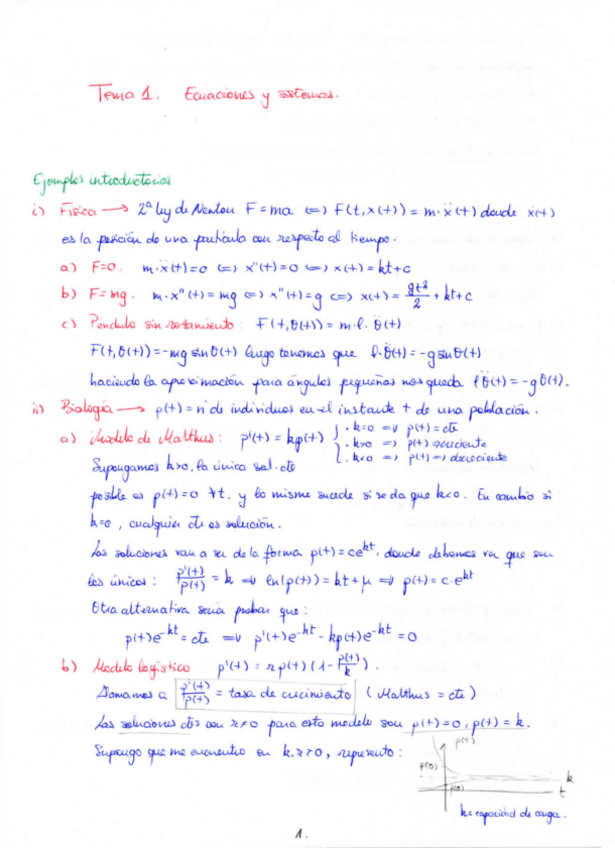 Tema 1. Ecuaciones y sistemas.
Ejemplos introductorios
i) Física → 2ª ley de Newton F = ma ⇔ F(t, x(t)) = m·ẍ(t) donde x(t)
es la posición de una partícula con respecto al tiempo.
a) F=0. m·ẍ(t)=0 ⇔ x''(t)=0 ⇔ x(t)=kt+c
b) F=mg. m·x''(t)=mg ⇔ x''(t)=g ⇔ x(t)= gt²/2 + kt+c
c) Péndulo sin rozamiento: F(t,θ(t)) = m·l·θ̈(t)
F(t,θ(t)) = -mg senθ(t) luego tenemos que l·θ̈(t) = -g senθ(t)
haciendo la aproximación para ángulos pequeños nos queda lθ̈(t) = -gθ(t).
ii) Biología → p(t) = nº de individuos en el instante t de una población.
a) Modelo de Malthus: p'(t) = kp(t) { · k=0 ⇒ p(t)=cte
· k>0 ⇒ p(t) creciente
· k<0 ⇒ p(t) ⇒ decreciente
Supongamos k>0, la única sol. cte
posible es p(t)=0 ∀t. y lo mismo sucede si se da que k<0. En cambio si
k=0, cualquier cte es solución.
Las soluciones van a ser de la forma p(t)=ce^kt, donde debemos ver que son
las únicas: p'(t)/p(t) = k ⇒ ln(p(t)) = kt+μ ⇒ p(t) = c·e^kt
Otra alternativa sería probar que:
p(t)e^-kt = cte ⇒ p'(t)e^-kt - kp(t)e^-kt = 0
b) Modelo logístico p'(t) = r p(t) (1 - p(t)/k).
Llamamos a p'(t)/p(t) = tasa de crecimiento (Malthus = cte)
Las soluciones ctes con r≠0 para este modelo son p(t)=0, p(t)=k.
Supongo que me encuentro en k, r>0, represento:
p(t)
p(0)
k
p(0)
t
k= capacidad de carga.
1.